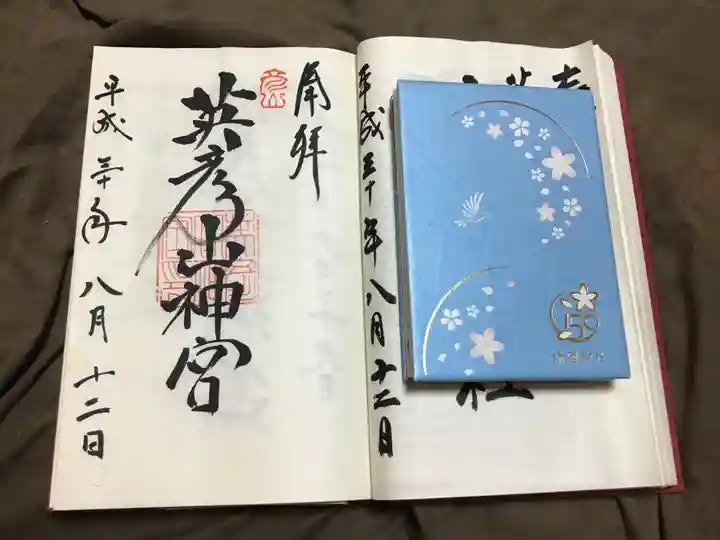 奉拝
英彦山神宮
平成三十年八月十二日
平成三十年八月十二日
社
150